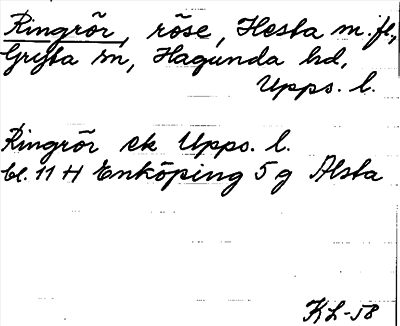 Ringrör, röse, Hesta m. fl.,
Gryta sn, Hagunda hd,
Upps. l.
Ringrör ek Upps. l.
bl. 11 H Enköping 5 g Alsta
KL-58